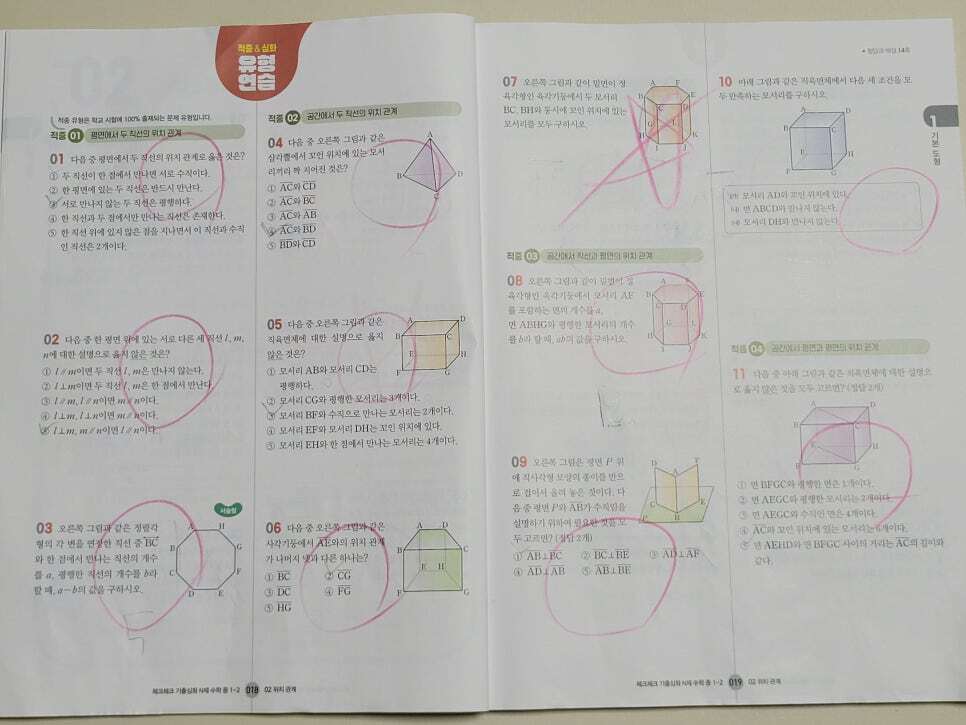 적중 & 심화
유형
연습
적중 유형은 학교 시험에 100% 출제되는 문제 유형입니다.
적중 01 평면에서 두 직선의 위치 관계
01 다음 중 평면에서 두 직선의 위치 관계로 옳은 것은?
① 두 직선이 한 점에서 만나면 서로 수직이다.
② 한 평면에 있는 두 직선은 반드시 만난다.
③ 서로 만나지 않는 두 직선은 평행하다.
④ 한 직선과 두 점에서만 만나는 직선은 존재한다.
⑤ 한 직선 위에 있지 않은 점을 지나면서 이 직선과 수직
인 직선은 2개이다.
02 다음 중 한 평면 위에 있는 서로 다른 세 직선 l, m,
n에 대한 설명으로 옳지 않은 것은?
① l∥m이면 두 직선 l, m은 만나지 않는다.
② l⊥m이면 두 직선 l, m은 한 점에서 만난다.
③ l∥m, l∥n이면 m∥n이다.
④ l⊥m, l⊥n이면 m∥n이다.
⑤ l⊥m, m∥n이면 l∥n이다.
서술형
03 오른쪽 그림과 같은 정팔각
형의 각 변을 연장한 직선 중 BC
와 한 점에서 만나는 직선의 개수
를 a, 평행한 직선의 개수를 b라
할 때, a-b의 값을 구하시오.
A H
B G
C F
D E
적중 02 공간에서 두 직선의 위치 관계
04 다음 중 오른쪽 그림과 같은
삼각뿔에서 꼬인 위치에 있는 모서
리끼리 짝 지어진 것은?
① AC와 CD
② AC와 BC
③ AC와 AB
④ AC와 BD
⑤ BD와 CD
A
B D
C
05 다음 중 오른쪽 그림과 같은
직육면체에 대한 설명으로 옳지
않은 것은?
① 모서리 AB와 모서리 CD는
평행하다.
② 모서리 CG와 평행한 모서리는 3개이다.
③ 모서리 BF와 수직으로 만나는 모서리는 2개이다.
④ 모서리 EF와 모서리 DH는 꼬인 위치에 있다.
⑤ 모서리 EH와 한 점에서 만나는 모서리는 4개이다.
A D
B C
E H
F G
06 다음 중 오른쪽 그림과 같은
사각기둥에서 AE와의 위치 관계
가 나머지 넷과 다른 하나는?
① BC ② CG
③ DC ④ FG
⑤ HG
A D
B C
E H
F G
체크체크 기출심화 N제 수학 중 1-2 018 02 위치 관계
07 오른쪽 그림과 같이 밑면이 정
육각형인 육각기둥에서 두 모서리
BC, BH와 동시에 꼬인 위치에 있는
모서리를 모두 구하시오.
A F
B E
G L
H K
I J
적중 03 공간에서 직선과 평면의 위치 관계
08 오른쪽 그림과 같이 밑면이 정
육각형인 육각기둥에서 모서리 AF
를 포함하는 면의 개수를 a,
면 ABHG와 평행한 모서리의 개수
를 b라 할 때, ab의 값을 구하시오.
B E
G L
H K
I
09 오른쪽 그림은 평면 P 위
에 직사각형 모양의 종이를 반으
로 접어서 올려 놓은 것이다. 다
음 중 평면 P와 AB가 수직임을
설명하기 위하여 필요한 것을 모
두 고르면? (정답 2개)
① AB⊥BC ② BC⊥BE ③ AD⊥AF
④ AD⊥AB ⑤ AB⊥BE
D A F
C B E
• 정답과 해설 14쪽
1
기본 도형
10 아래 그림과 같은 직육면체에서 다음 세 조건을 모
두 만족하는 모서리를 구하시오.
A D
B C
E H
F G
㈎ 모서리 AD와 꼬인 위치에 있다.
㈏ 면 ABCD와 만나지 않는다.
㈐ 모서리 DH와 만나지 않는다.
적중 04 공간에서 평면과 평면의 위치 관계
11 다음 중 아래 그림과 같은 직육면체에 대한 설명으
로 옳지 않은 것을 모두 고르면? (정답 2개)
A D
B C
E H
F G
① 면 BFGC와 평행한 면은 1개이다.
② 면 AEGC와 평행한 모서리는 2개이다.
③ 면 AEGC와 수직인 면은 4개이다.
④ AC와 꼬인 위치에 있는 모서리는 6개이다.
⑤ 면 AEHD와 면 BFGC 사이의 거리는 AC의 길이와
같다.
체크체크 기출심화 N제 수학 중 1-2 019 02 위치 관계